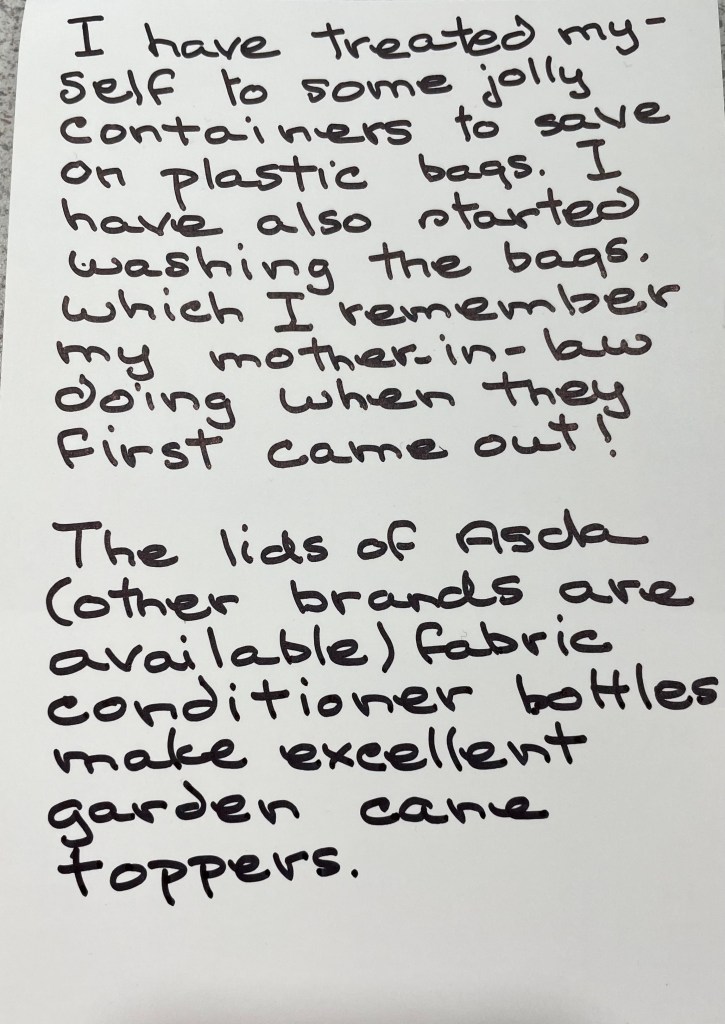 I have treated my-
self to some jolly
containers to save
on plastic bags. I
have also started
washing the bags.
which I remember
my mother-in-law
doing when they
first came out!
The lids of Asda
(other brands are
available) fabric
conditioner bottles
make excellent
garden cane
toppers.